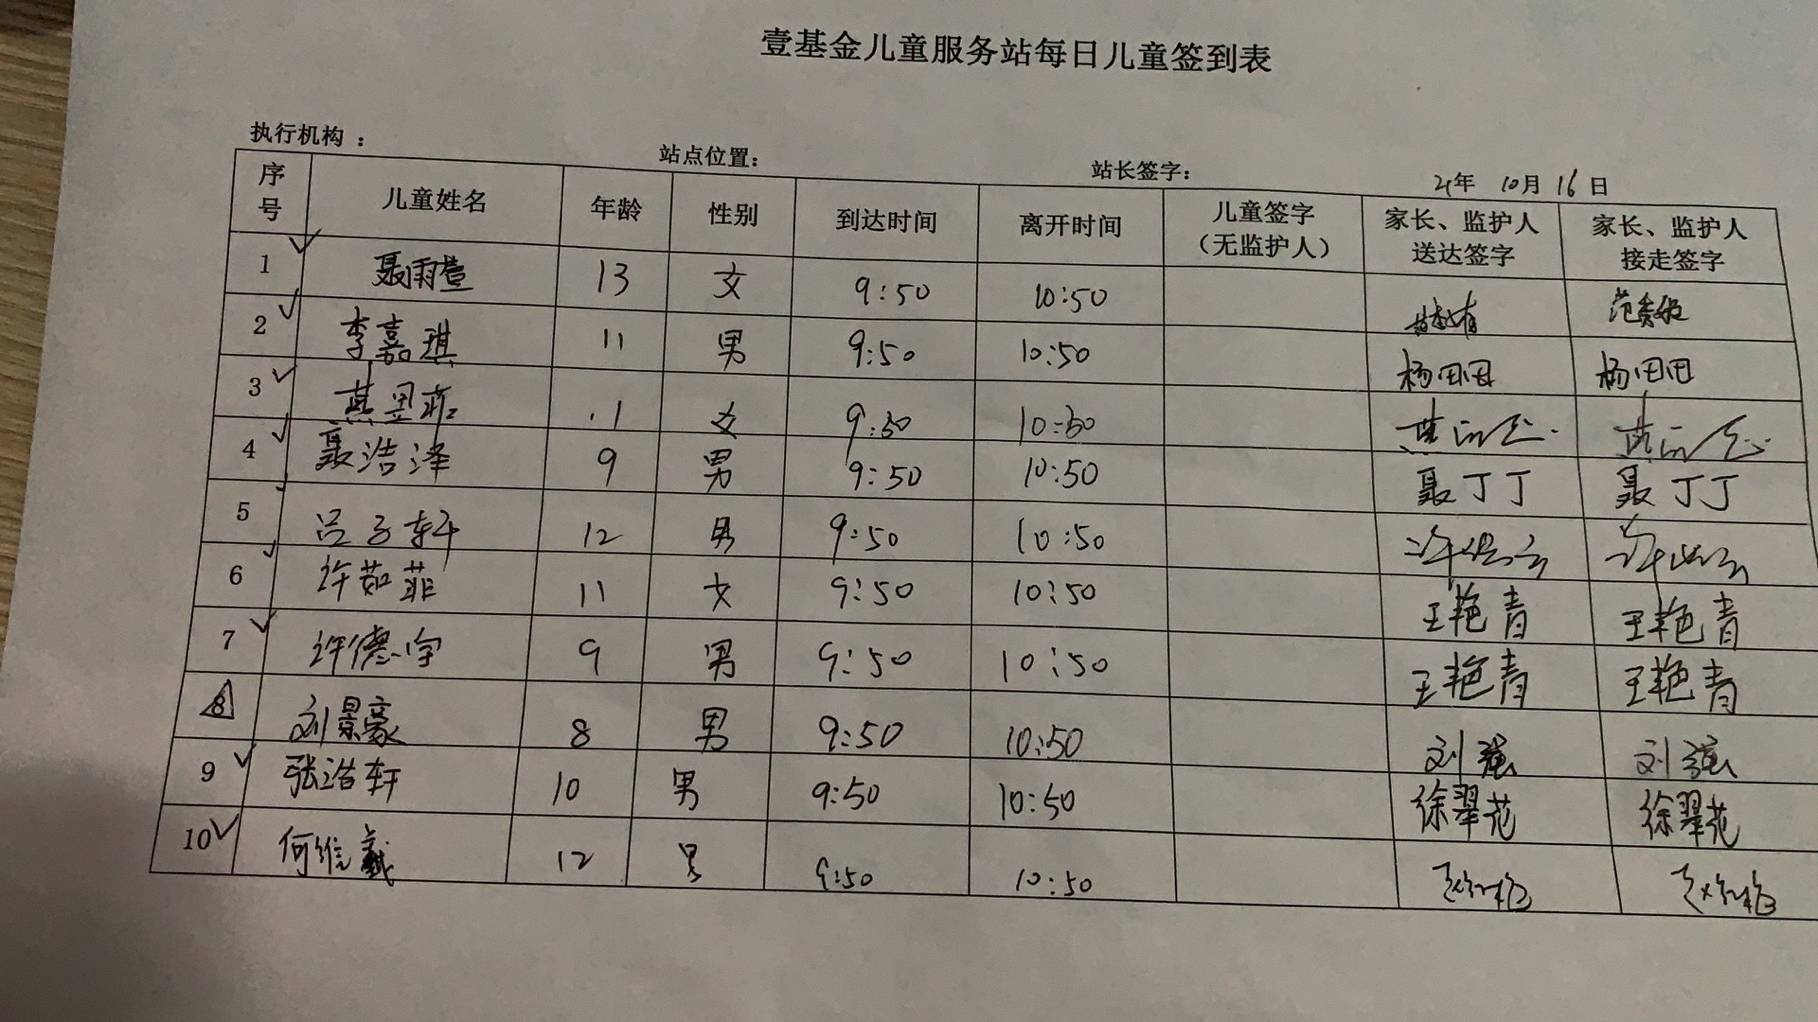 壹基金儿童服务站每日儿童签到表
执行机构： 站点位置： 站长签字： 21年 10月 16日
序号 儿童姓名 年龄 性别 到达时间 离开时间 儿童签字（无监护人） 家长、监护人送达签字 家长、监护人接走签字
1 聂雨萱 13 女 9:50 10:50
2 李嘉琪 11 男 9:50 10:50 杨田田 杨田田
3 11 女 9:50 10:50
4 聂浩泽 9 男 9:50 10:50 聂丁丁 聂丁丁
5 吕子轩 12 男 9:50 10:50
6 许茹菲 11 女 9:50 10:50 王艳青 王艳青
7 许德宇 9 男 9:50 10:50 王艳青 王艳青
8 刘景豪 8 男 9:50 10:50 刘强 刘强
9 张浩轩 10 男 9:50 10:50 徐翠花 徐翠花
10 何维義 12 男 9:50 10:50